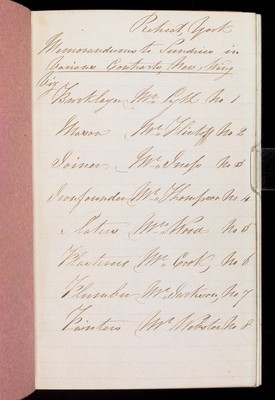 Retreat, York
Memorandums to Sundries in
Various Contracts, New Wing
Viz
Bricklayer Mr. Lyth No 1
Mason Mr. No 2
Joiner Mr. No 3
Ironfounder Mr. Thompson No 4
Slaters Mrs. Wood No 5
Plasterers Mr. Cook, No 6
Plumber Mr. No 7
Painters Mr. Webster No 8